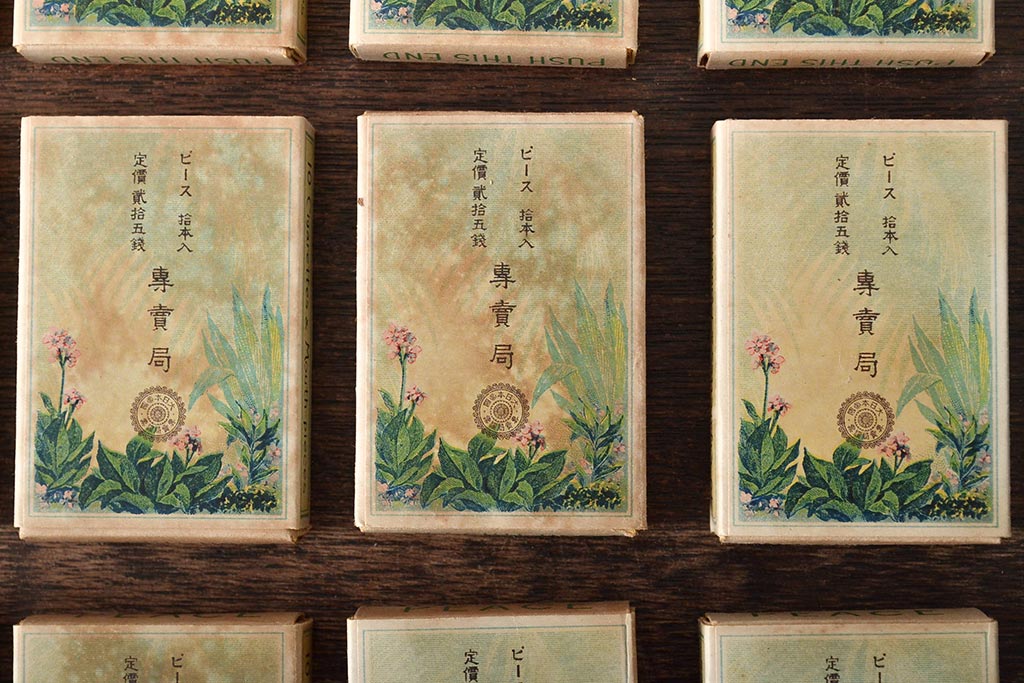 PUSH THIS END
PUSH THIS END
PUSH THIS END
ピース 拾本入
定價 貳拾五錢
專賣局
ピース 拾本入
定價 貳拾五錢
專賣局
ピース 拾本入
定價 貳拾五錢
專賣局
PEACE
PEACE
ピ
定價
ピース
定價
ピー
定價